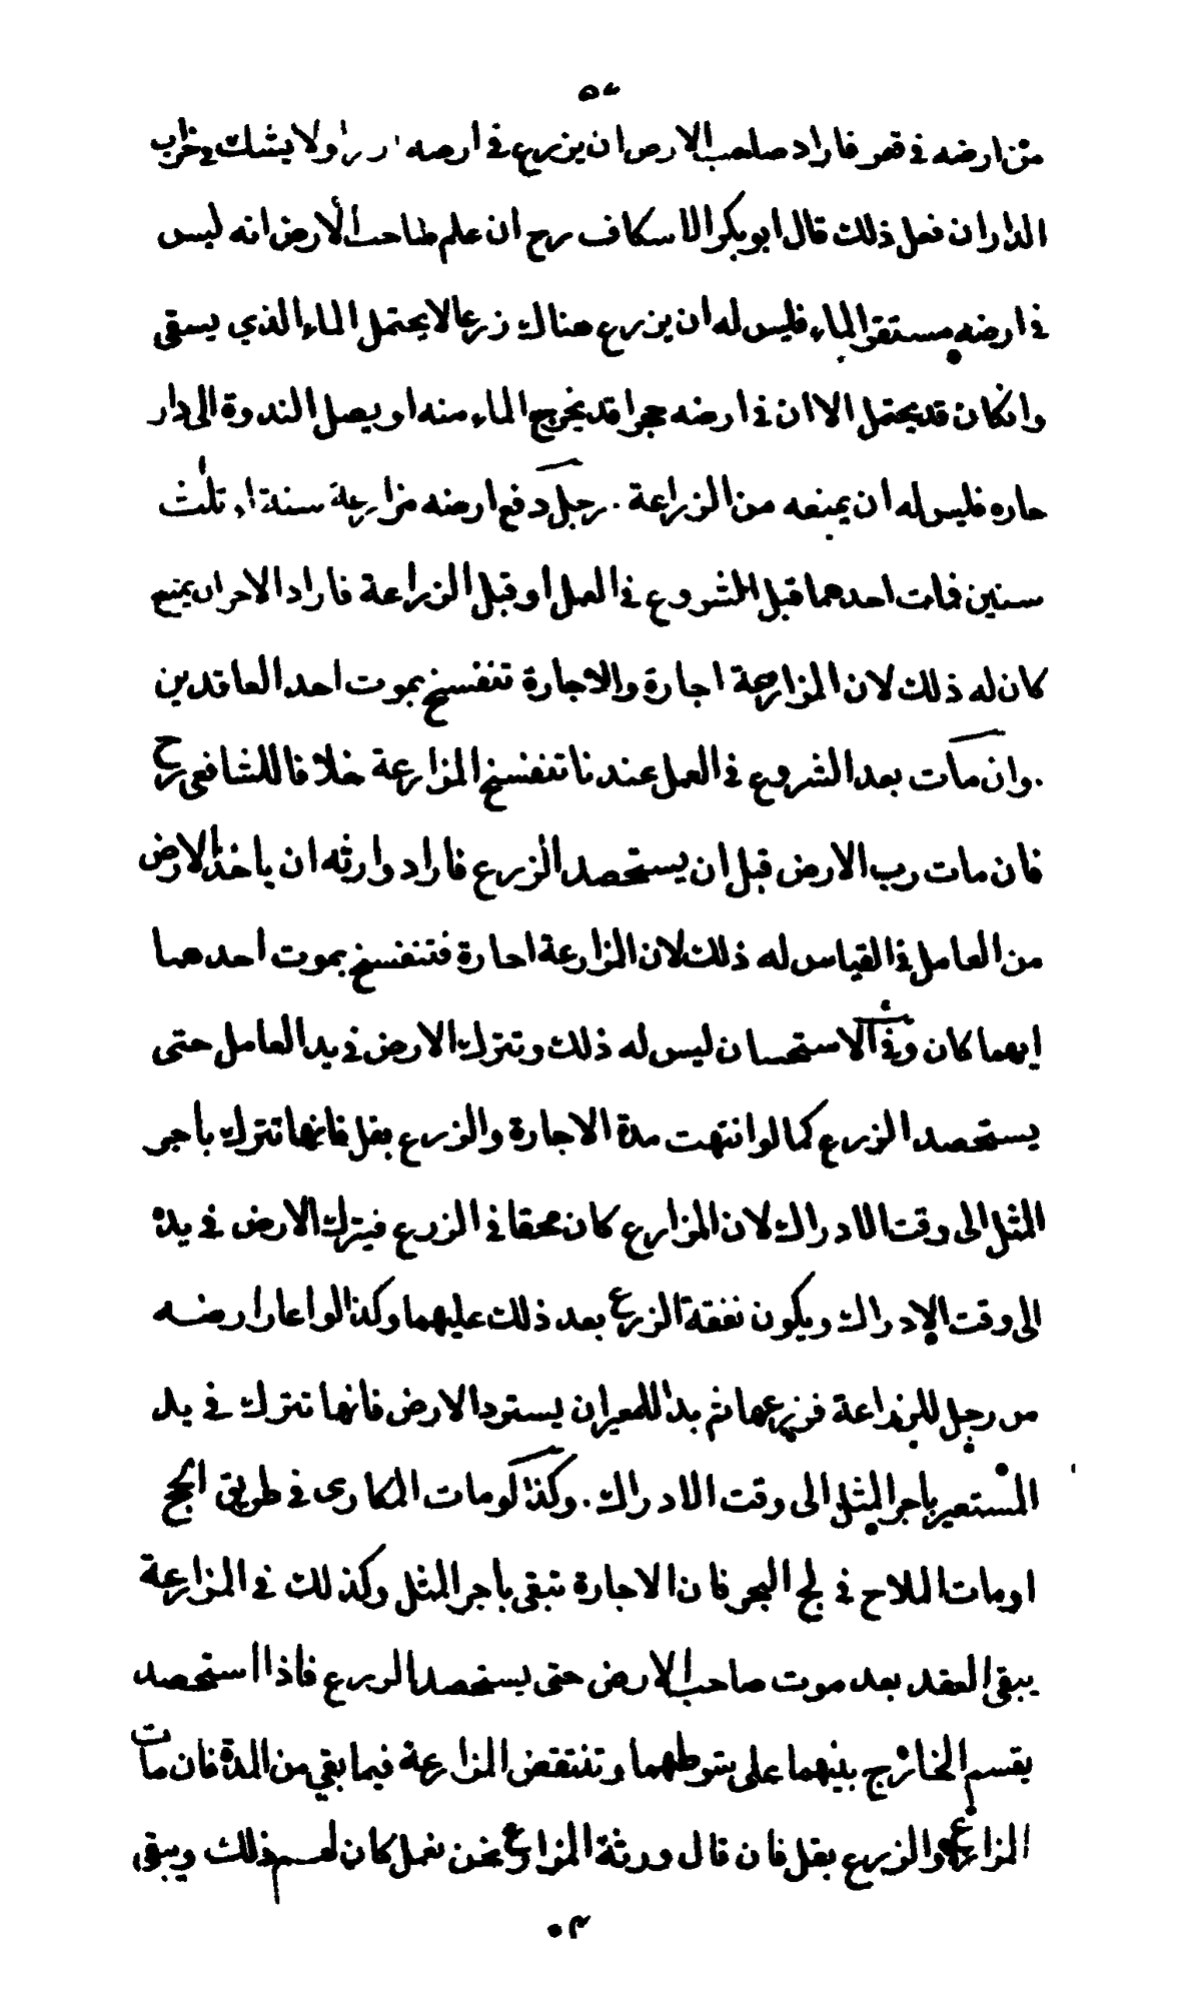 من ارضه في قصر فاراد صاحب الارض ان يزرع في ارضه ولا يشك في خراب
الدار ان فعل ذلك قال ابو بكر الاسكاف رح ان علم صاحب الأرض انه ليس
في ارضه مستقر الماء فليس له ان يزرع هناك زرعا لا يحتمل الماء الذي يسقى
وان كان قد يحتمل الا ان في ارضه حجرا قد يخرج الماء منه او يصل الندوة الى دار
جاره فليس له ان يمنعه من الزراعة . رجل دفع ارضه مزارعة سنة او ثلث
سنين فمات احدهما قبل الشروع في العمل او قبل الزراعة فاراد الاخر ان يمنع
كان له ذلك لان المزارعة اجارة والاجارة تنفسخ بموت احد العاقدين
. وان مات بعد الشروع في العمل عندنا تنفسخ المزارعة خلافا للشافعي رح
فان مات رب الارض قبل ان يستحصد الزرع فاراد وارثه ان ياخذ الارض
من العامل في القياس له ذلك لان المزارعة اجارة فتنفسخ بموت احدهما
ايهما كان وفي الاستحسان ليس له ذلك وتترك الارض في يد العامل حتى
يستحصد الزرع كما لو انتهت مدة الاجارة والزرع بقل فانها تترك بأجر
المثل الى وقت الادراك لان المزارع كان محقا في الزرع فيترك الارض في يده
الى وقت الادراك ويكون نفقة الزرع بعد ذلك عليهما وكذا لو اعار ارضه
من رجل للزراعة فزرعها ثم بدا للمعير ان يسترد الارض فانها تترك في يد
المستعير باجر المثل الى وقت الادراك . وكذا لو مات المكارى في طريق الحج
او مات الملاح في لج البحر فان الاجارة تبقى باجر المثل وكذلك في المزارعة
يبقى العقد بعد موت صاحب الارض حتى يستحصد الزرع فاذا استحصد
يقسم الخارج بينهما على شرطهما وتنتقض المزارعة فيما بقي من المدة فان مات
المزارع والزرع بقل فان قال ورثة المزارع نحن نعمل كان لهم ذلك ويبقى